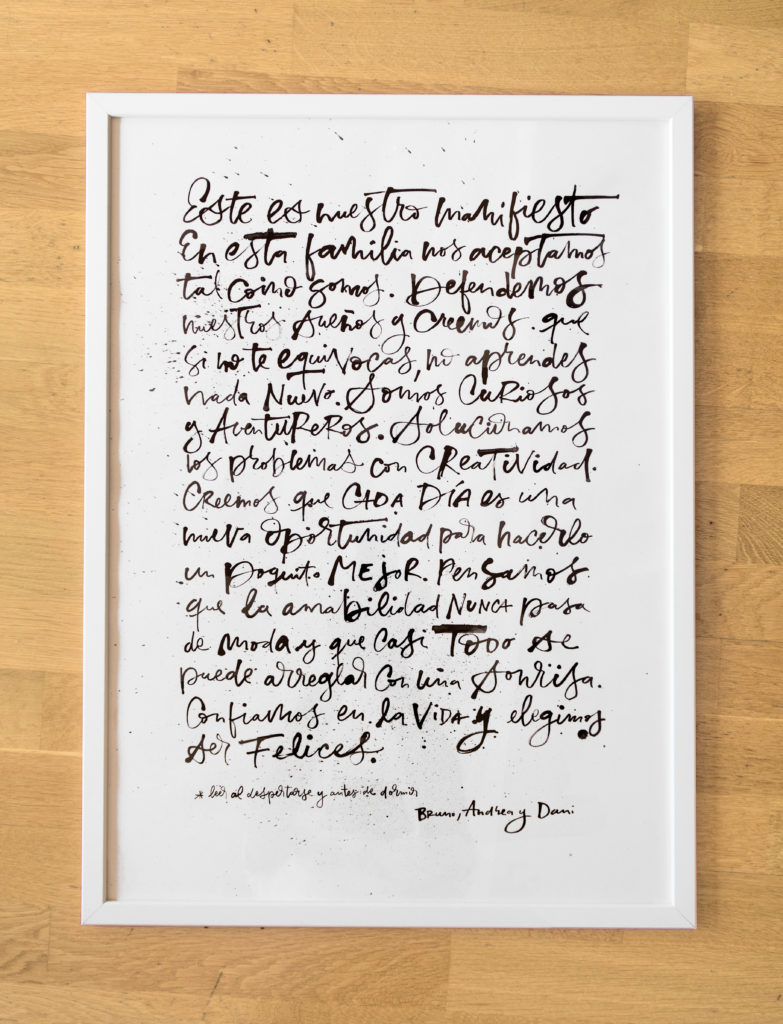 Este es nuestro manifiesto
En esta familia nos aceptamos
tal como somos. Defendemos
nuestros sueños y creemos que
si no te equivocas, no aprendes
nada Nuevo. Somos CuRiosos
y AventuReRos. Solucionamos
los problemas con CReaTiVidad.
CReemos que CADA DÍA es una
nueva oportunidad para hacerlo
un poquito MEJoR. Pensamos
que la amabilidad NUNCA pasa
de moda y que casi ToDo se
puede arreglar con una Sonrisa.
Confiamos en la ViDA y elegimos
ser Felices.
* leer al despertarse y antes de dormir
Bruno, Andrea y Dani